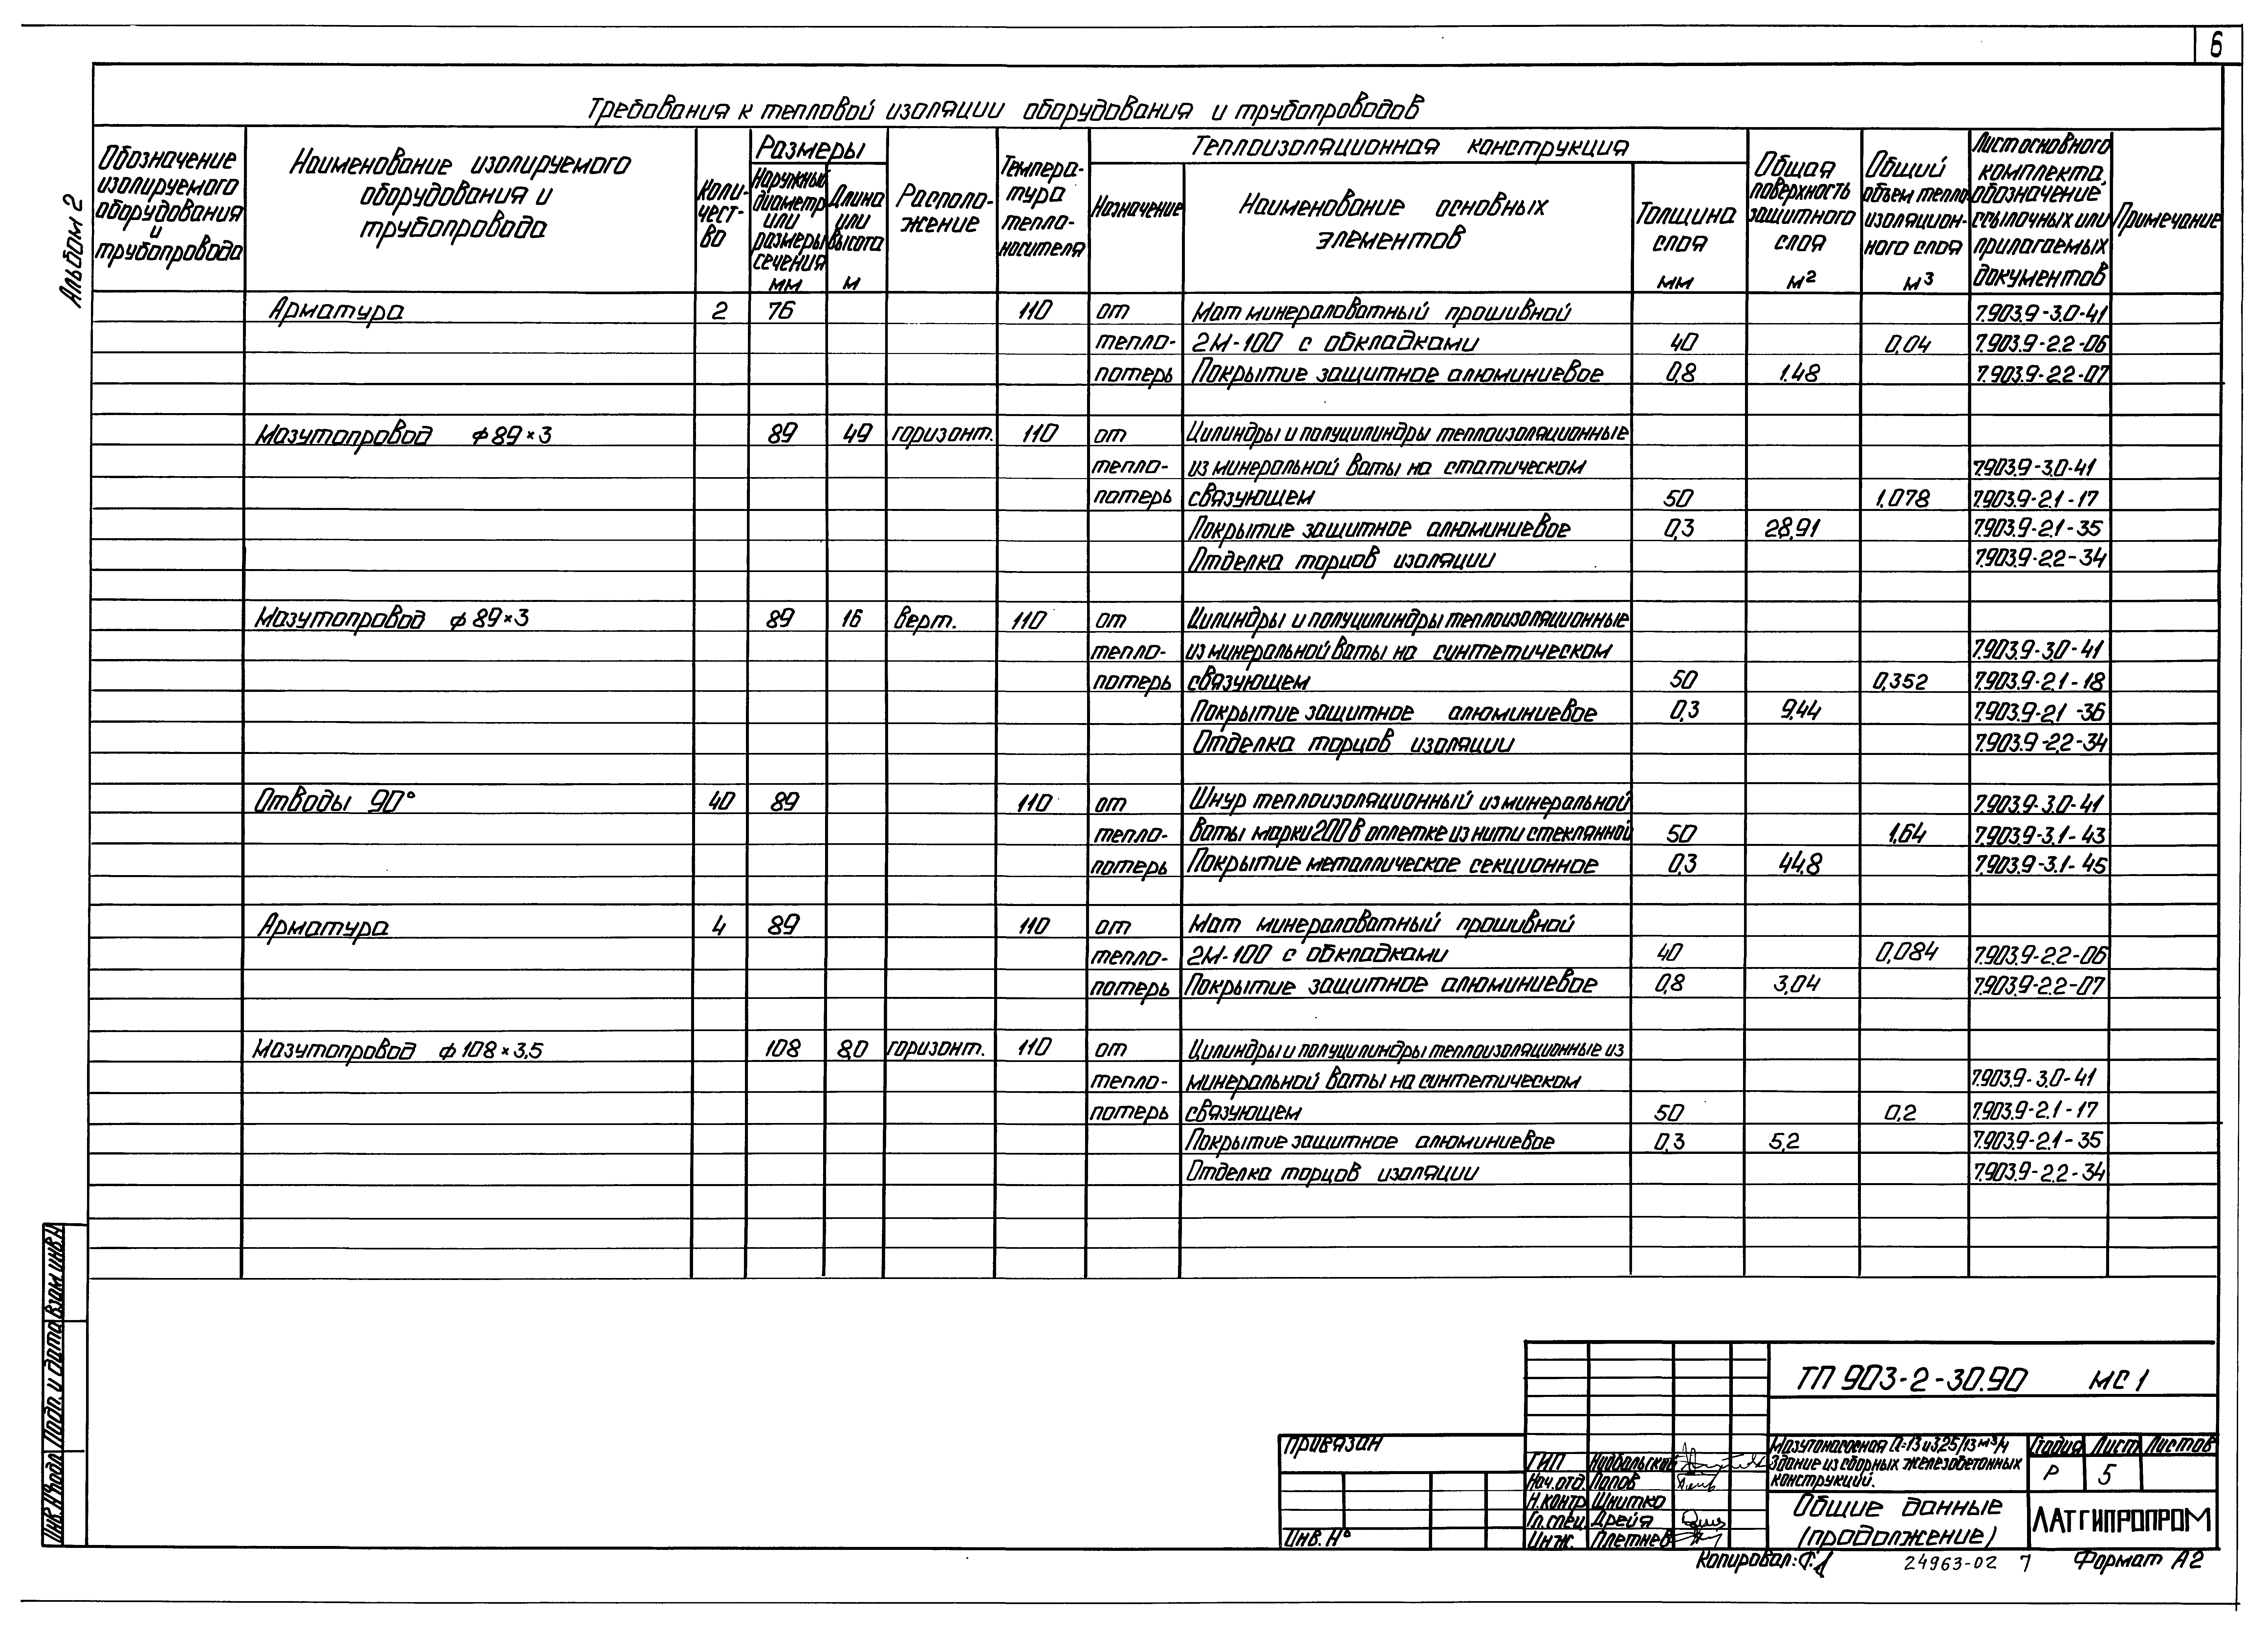 6
Альбом 2
Требования к тепловой изоляции оборудования и трубопроводов
Обозначение изолируемого оборудования и трубопровода
Наименование изолируемого оборудования и трубопровода
Коли-чест-во
Размеры
Наружный диаметр или размеры сечения мм
Длина или высота м
Располо-жение
Темпера-тура тепло-носителя
Теплоизоляционная конструкция
Назначение
Наименование основных элементов
Толщина слоя мм
Общая поверхность защитного слоя м²
Общий объем тепло изоляцион-ного слоя м³
Лист основного комплекта, обозначение ссылочных или прилагаемых документов
Примечание
Арматура 2 76 110 от Мат минераловатный прошивной 7.903.9-3.0-41
тепло- 2М-100 с обкладками 40 0,04 7.903.9-2.2-06
потерь Покрытие защитное алюминиевое 0,8 1.48 7.903.9-2.2-07
Мазутопровод ф89×3 89 49 горизонт. 110 от Цилиндры и полуцилиндры теплоизоляционные
тепло- из минеральной ваты на статическом 7.903.9-3.0-41
потерь связующем 50 1,078 7.903.9-2.1-17
Покрытие защитное алюминиевое 0,3 28,91 7.903.9-2.1-35
Отделка торцов изоляции 7.903.9-2.2-34
Мазутопровод ф89×3 89 16 верт. 110 от Цилиндры и полуцилиндры теплоизоляционные
тепло- из минеральной ваты на синтетическом 7.903.9-3.0-41
потерь связующем 50 0,352 7.903.9-2.1-18
Покрытие защитное алюминиевое 0,3 9.44 7.903.9-2.1-36
Отделка торцов изоляции 7.903.9-2.2-34
Отводы 90° 40 89 110 от Шнур теплоизоляционный из минеральной 7.903.9-3.0-41
тепло- ваты марки 200 в оплетке из нити стеклянной 50 1,64 7.903.9-3.1-43
потерь Покрытие металлическое секционное 0,3 44,8 7.903.9-3.1-45
Арматура 4 89 110 от Мат минераловатный прошивной
тепло- 2М-100 с обкладками 40 0,084 7.903.9-2.2-06
потерь Покрытие защитное алюминиевое 0,8 3,04 7.903.9-2.2-07
Мазутопровод ф108×3,5 108 8,0 горизонт. 110 от Цилиндры и полуцилиндры теплоизоляционные из
тепло- минеральной ваты на синтетическом 7.903.9-3.0-41
потерь связующем 50 0,2 7.903.9-2.1-17
Покрытие защитное алюминиевое 0,3 5,2 7.903.9-2.1-35
Отделка торцов изоляции 7.903.9-2.2-34
Инв.№подл. Подп. и дата Взам инв.№
ТП 903-2-30.90 МС1
Привязан
Инв. №
ГИП
Нач.отд. Попов
Н.контр Шнитко
Гл.спец. Дрейя
Инж. Плетнев
Мазутонасосная Q=13 и 3,25/13 м³/ч
Здание из сборных железобетонных
конструкций.
Стадия Лист Листов
Р 5
Общие данные
(продолжение)
ЛАТГИПРОПРОМ
Копировал:
24963-02 7
Формат А2